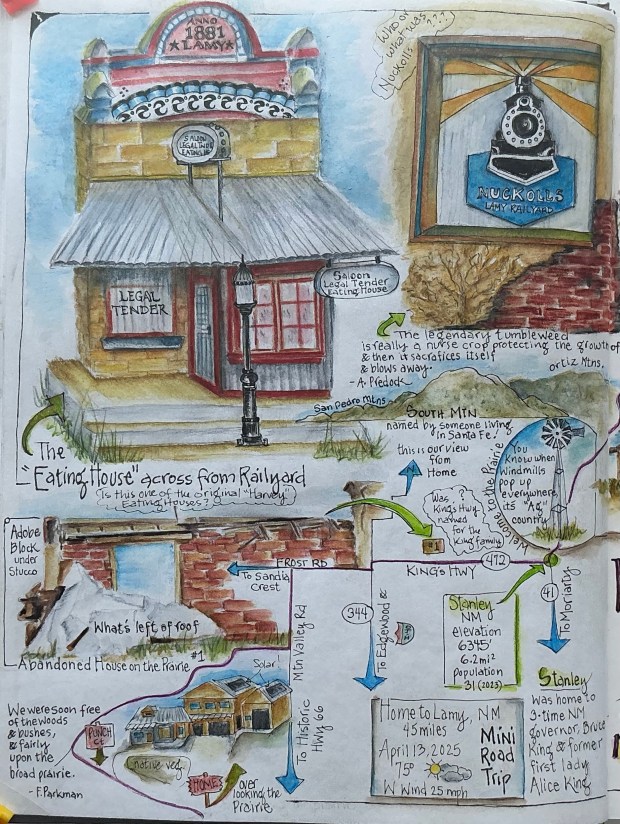 ANNO
1881
★LAMY★
SALOON
LEGAL TENDER
EATING HOUSE
LEGAL
TENDER
Saloon
Legal Tender
Eating House
Who or
what was
Nuckolls ???
NUCKOLLS
LAMY RAILYARD
The legendary tumbleweed
is really a nurse crop protecting the growth of
& then it sacrafices itself
& blows away.
- A. Predock
ortiz Mtns.
San Pedro Mtns
SOUTH MTN
named by someone living
in Santa Fe!
this is our view
from
Home
The
"Eating House" across from Railyard
Is this one of the original "Harvey"
Eating Houses?
Was ?
King's Hwy
named
for the
King family
Welcome to the Prairie
You
Know when
Windmills
pop up
everywhere
its "Ag"
country
Adobe
Block
under
Stucco
FROST RD
To Sandia
Crest
What's left of roof
Abandoned House on the Prairie #1
KING'S HWY
472
41
To Moriarty
344
To Edgewood &
Mtn Valley Rd
To Historic
HWY 66
Stanley
NM
elevation
6345'
6.2mi²
population
31 (2023)
Stanley
Was home to
3-time NM
governor, Bruce
King & former
first lady
Alice King
Home to Lamy, NM
45 miles
April 13, 2025
75°
W Wind 25 mph
Mini
Road
Trip
We were soon free
of the woods
& bushes,
& fairly
upon the
broad prairie.
- F. Parkman
PUNCH
Ct
Solar
(native veg.)
HOME
over
looking the
Prairie